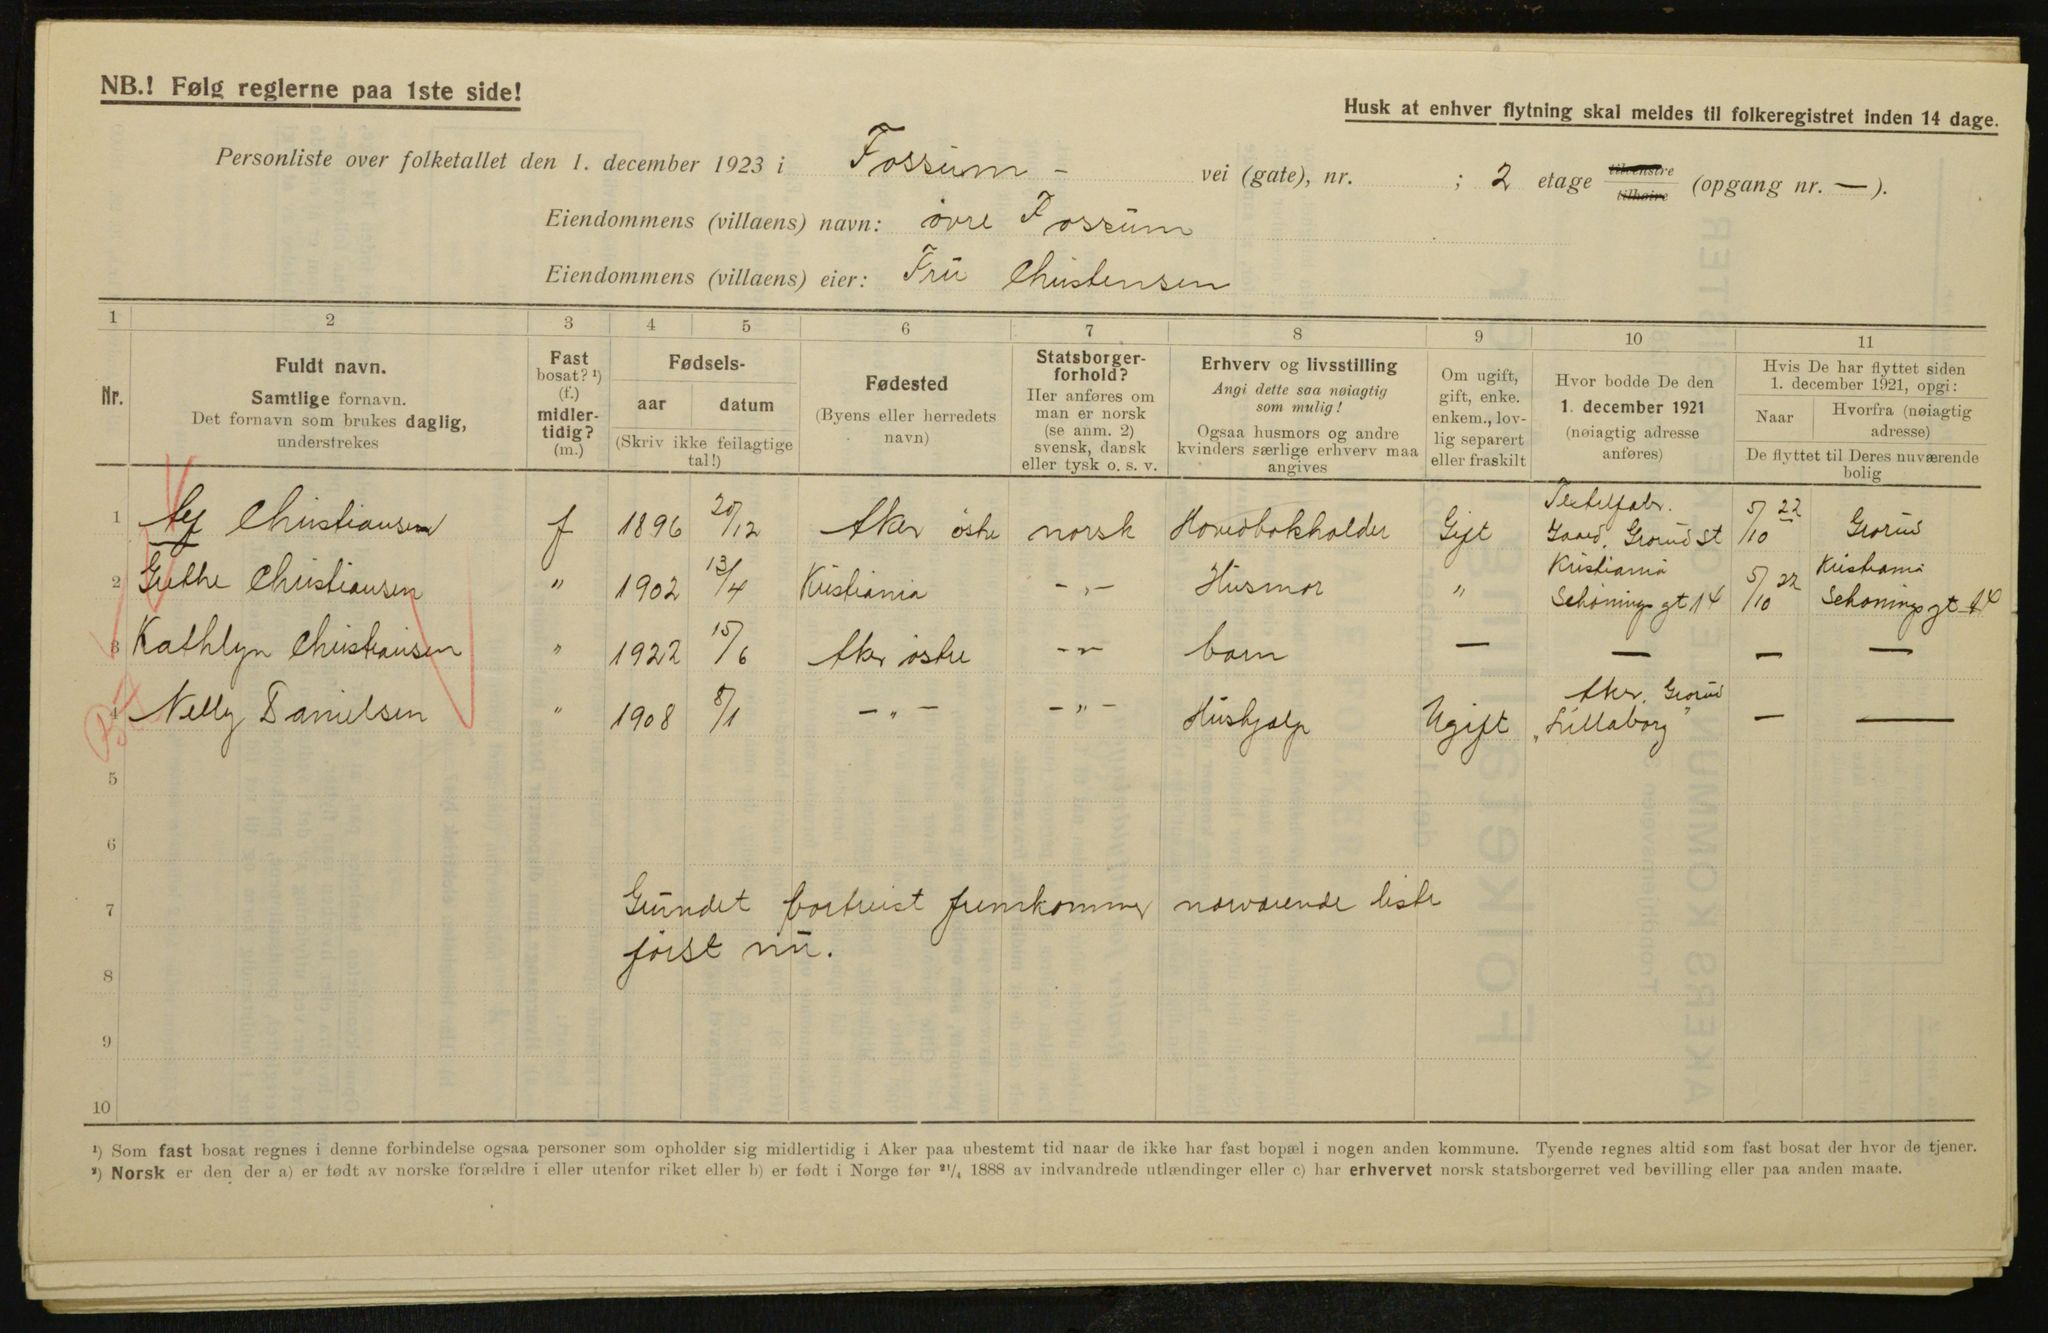 NB.! Følg reglerne paa 1ste side!
Husk at enhver flytning skal meldes til folkeregistret inden 14 dage.
Personliste over folketallet den 1. december 1923 i Fossum - vei (gate), nr. ; 2 etage tilvenstre tilhøire (opgang nr. — ).
Eiendommens (villaens) navn: øvre Fossum
Eiendommens (villaens) eier: Fru Christensen
1 2 3 4 5 6 7 8 9 10 11
Nr.
Fuldt navn.
Samtlige fornavn.
Det fornavn som brukes daglig,
understrekes
Fast
bosat? ¹)
(f.)
midler-
tidig?
(m.)
Fødsels-
aar datum
(Skriv ikke feilagtige
tal!)
Fødested
(Byens eller herredets
navn)
Statsborger-
forhold?
Her anføres om
man er norsk
(se anm. 2)
svensk, dansk
eller tysk o. s. v.
Erhverv og livsstilling
Angi dette saa nøiagtig
som mulig!
Ogsaa husmors og andre
kvinders særlige erhverv maa
angives
Om ugift,
gift, enke.
enkem., lov-
lig separert
eller fraskilt
Hvor bodde De den
1. december 1921
(nøiagtig adresse
anføres)
Hvis De har flyttet siden
1. december 1921, opgi:
Naar Hvorfra (nøiagtig
adresse)
De flyttet til Deres nuværende
bolig
1 Christiansen f 1896 20/12 Aker østre norsk Hovedbokholder Gift Textilfabr. Gaard, Grorud st 5/10 22 Grorud
2 Grethe Christiansen " 1902 13/4 Kristiania - " - Husmor " Kristiania Schønings gt 14 5/10 22 Kristiania Schønings gt 14
3 Kathlyn Christiansen " 1922 15/6 Aker østre - " - barn — — — —
4 Nelly Danielsen " 1908 8/1 - " - - " - Hushjælp Ugift Aker, Grorud "Lillaborg" — —
5
6
7 Grundet bortreist fremkommer nærværende liste
først nu.
8
9
10
¹) Som fast bosat regnes i denne forbindelse ogsaa personer som opholder sig midlertidig i Aker paa ubestemt tid naar de ikke har fast bopæl i nogen anden kommune. Tyende regnes altid som fast bosat der hvor de tjener.
²) Norsk er den der a) er født av norske forældre i eller utenfor riket eller b) er født i Norge før ²¹/₄ 1888 av indvandrede utlændinger eller c) har erhvervet norsk statsborgerret ved bevilling eller paa anden maate.